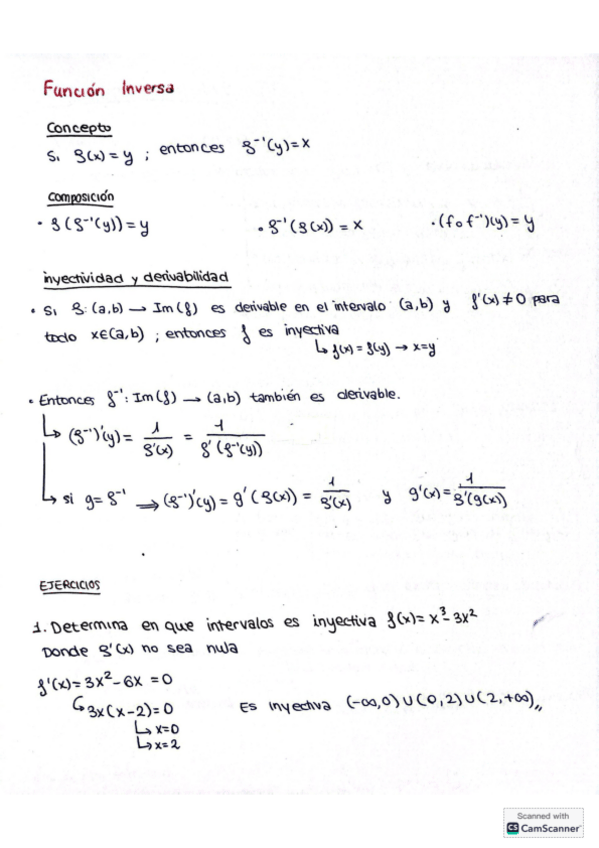 Función Inversa
Concepto
Si f(x) = y ; entonces f⁻¹(y) = x
Composición
• f(f⁻¹(y)) = y • f⁻¹(f(x)) = x • (f∘f⁻¹)(y) = y
inyectividad y derivabilidad
• Si f: (a,b) → Im(f) es derivable en el intervalo (a,b) y f'(x) ≠ 0 para
todo x∈(a,b) ; entonces f es inyectiva
↳ f(x) = f(y) → x=y
• Entonces f⁻¹: Im(f) → (a,b) también es derivable.
↳ (f⁻¹)'(y) = 1/f'(x) = 1/f'(f⁻¹(y))
↳ si g = f⁻¹ ⟹ (f⁻¹)'(y) = g'(f(x)) = 1/f'(x) y g'(x) = 1/f'(g(x))
EJERCICIOS
1. Determina en que intervalos es inyectiva f(x) = x³ - 3x²
Donde f'(x) no sea nula
f'(x) = 3x² - 6x = 0
↳ 3x(x-2) = 0 Es inyectiva (-∞,0) ∪ (0,2) ∪ (2,+∞),,
↳ x=0
↳ x=2
Scanned with
CS CamScanner